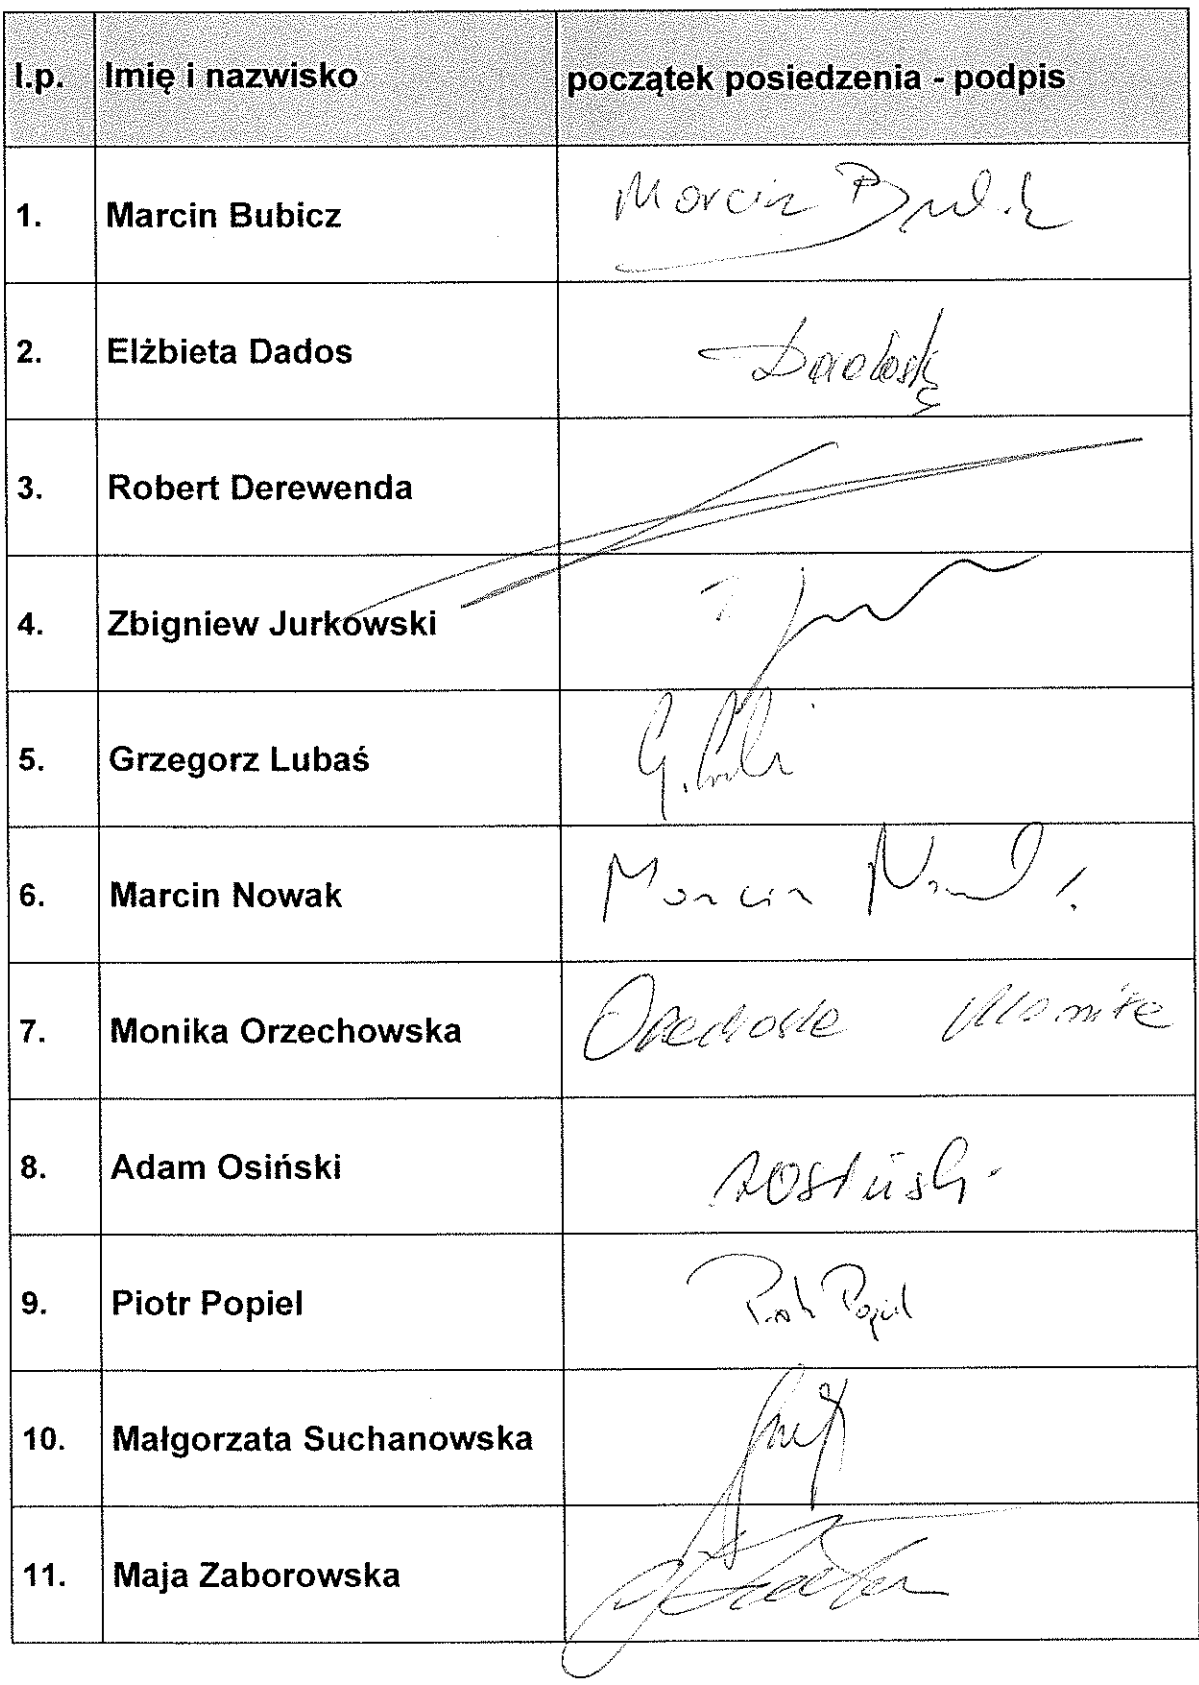 l.p. Imię i nazwisko początek posiedzenia - podpis
1. Marcin Bubicz Marcin
2. Elżbieta Dados
3. Robert Derewenda
4. Zbigniew Jurkowski
5. Grzegorz Lubaś G.
6. Marcin Nowak Marcin
7. Monika Orzechowska
8. Adam Osiński
9. Piotr Popiel Piotr Popiel
10. Małgorzata Suchanowska
11. Maja Zaborowska